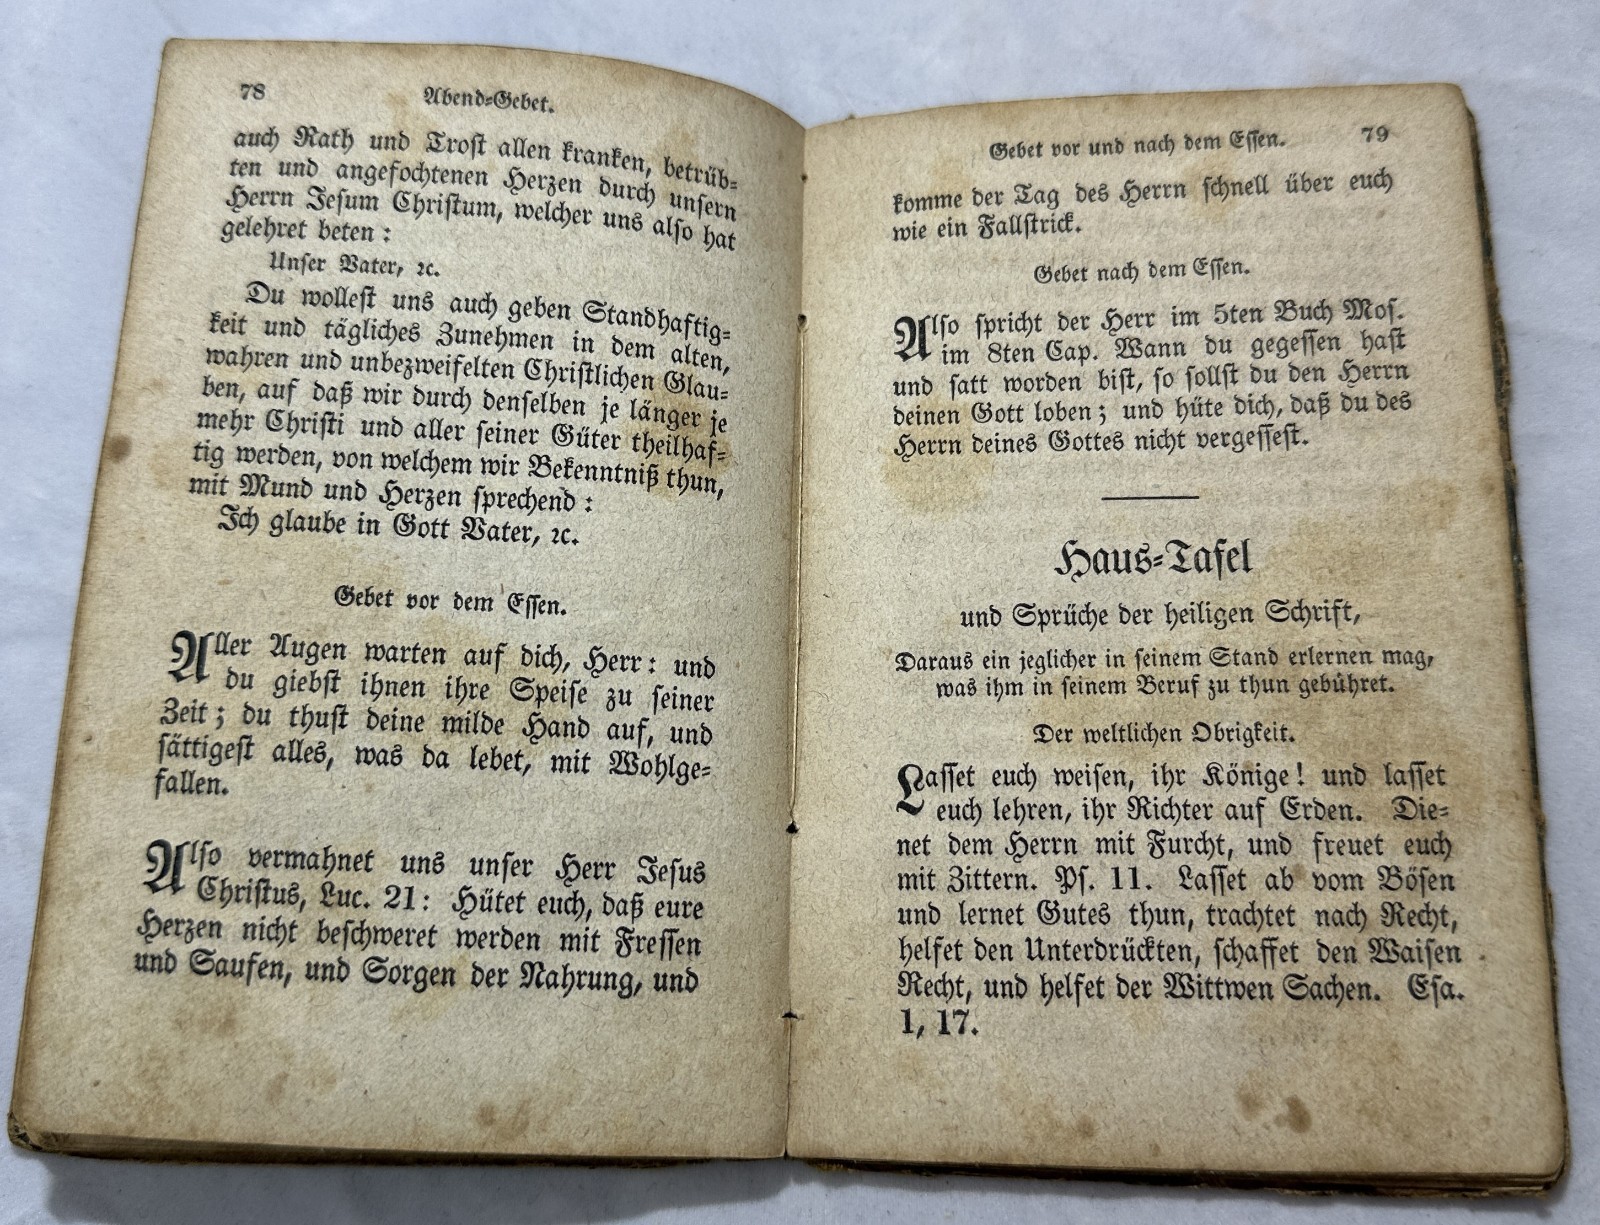 78
Abend-Gebet.
auch Rath und Trost allen kranken, betrüb-
ten und angefochtenen Herzen durch unsern
Herrn Jesum Christum, welcher uns also hat
gelehret beten:
Unser Vater, ꝛc.
Du wollest uns auch geben Standhaftig-
keit und tägliches Zunehmen in dem alten,
wahren und unbezweifelten Christlichen Glau-
ben, auf daß wir durch denselben je länger je
mehr Christi und aller seiner Güter theilhaf-
tig werden, von welchem wir Bekenntniß thun,
mit Mund und Herzen sprechend:
Ich glaube in Gott Vater, ꝛc.
Gebet vor dem Essen.
Aller Augen warten auf dich, Herr: und
du giebst ihnen ihre Speise zu seiner
Zeit; du thust deine milde Hand auf, und
sättigest alles, was da lebet, mit Wohlge-
fallen.
Also vermahnet uns unser Herr Jesus
Christus, Luc. 21: Hütet euch, daß eure
Herzen nicht beschweret werden mit Fressen
und Saufen, und Sorgen der Nahrung, und
Gebet vor und nach dem Essen.
79
komme der Tag des Herrn schnell über euch
wie ein Fallstrick.
Gebet nach dem Essen.
Also spricht der Herr im 5ten Buch Mos.
im 8ten Cap. Wann du gegessen hast
und satt worden bist, so sollst du den Herrn
deinen Gott loben; und hüte dich, daß du des
Herrn deines Gottes nicht vergessest.
Haus-Tafel
und Sprüche der heiligen Schrift,
Daraus ein jeglicher in seinem Stand erlernen mag,
was ihm in seinem Beruf zu thun gebühret.
Der weltlichen Obrigkeit.
Lasset euch weisen, ihr Könige! und lasset
euch lehren, ihr Richter auf Erden. Die-
net dem Herrn mit Furcht, und freuet euch
mit Zittern. Ps. 11. Lasset ab vom Bösen
und lernet Gutes thun, trachtet nach Recht,
helfet den Unterdrückten, schaffet den Waisen
Recht, und helfet der Wittwen Sachen. Esa.
1, 17.